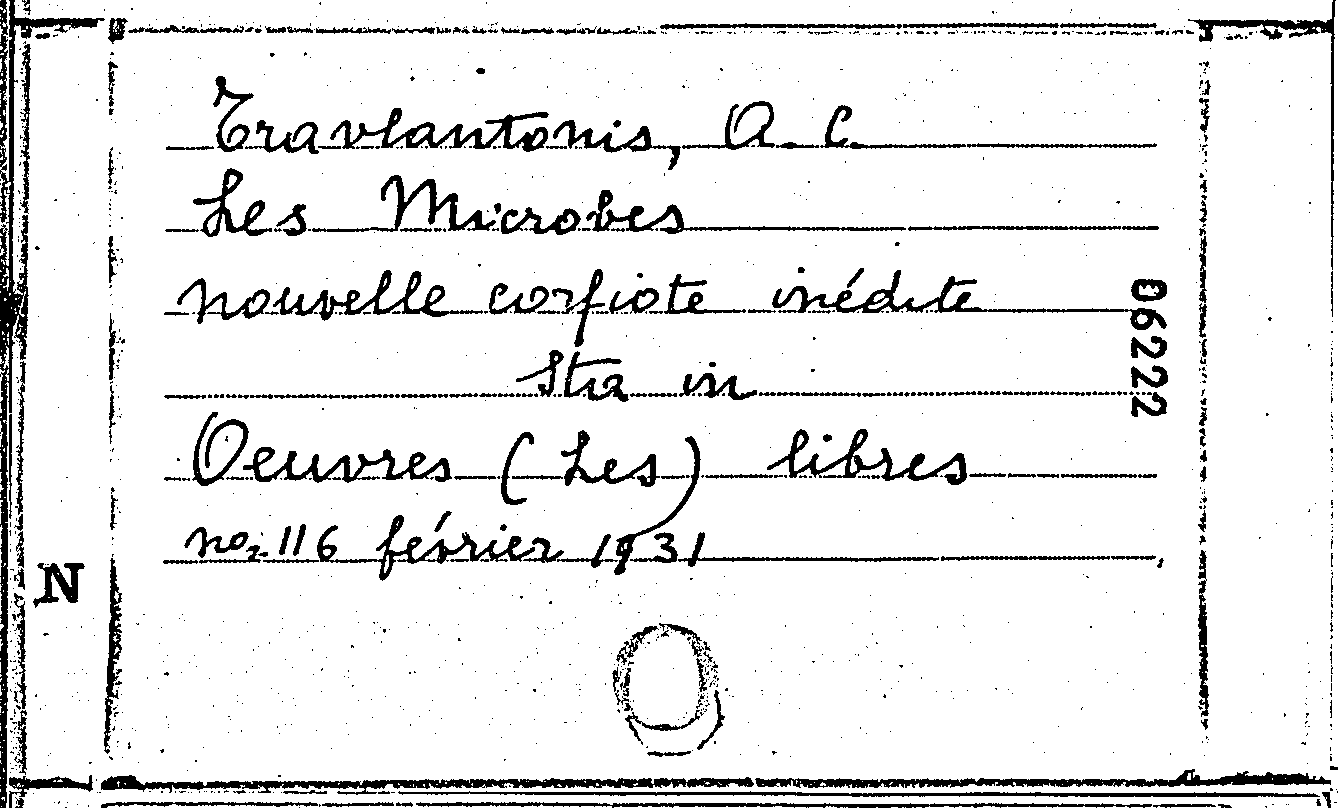 Travlantonis, A. C.
Les Microbes
nouvelle corfiote inédite
Sta in
Oeuvres (Les) libres
no. 116 février 1931
06222
N